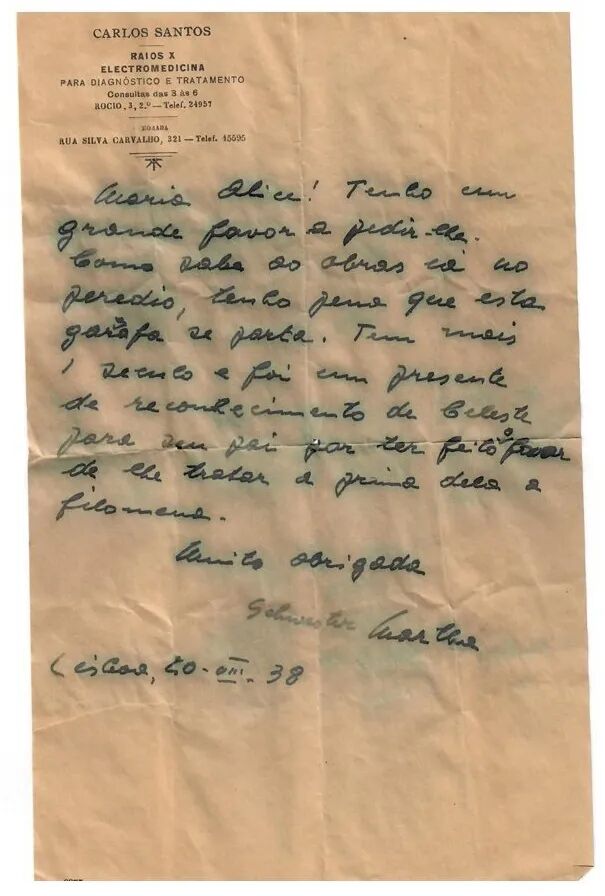 CARLOS SANTOS
RAIOS X
ELECTROMEDICINA
PARA DIAGNÓSTICO E TRATAMENTO
Consultas das 3 às 6
ROCIO, 3, 2.º — Telef. 24957
MORADA
RUA SILVA CARVALHO, 321 — Telef. 45595
Maria Alice! Tenho um
grande favor a pedir-lhe.
Como sabe as obras cá no
peredio, tenho pena que esta
garafa se parta. Tem mais
1 seculo e foi um presente
de reconhecimento de Celeste
para seu pai por ter feito o favor
de lhe tratar a prima dela a
filomena.
Muito obrigada
Schwester Martha
Lisboa, 20-VIII-38